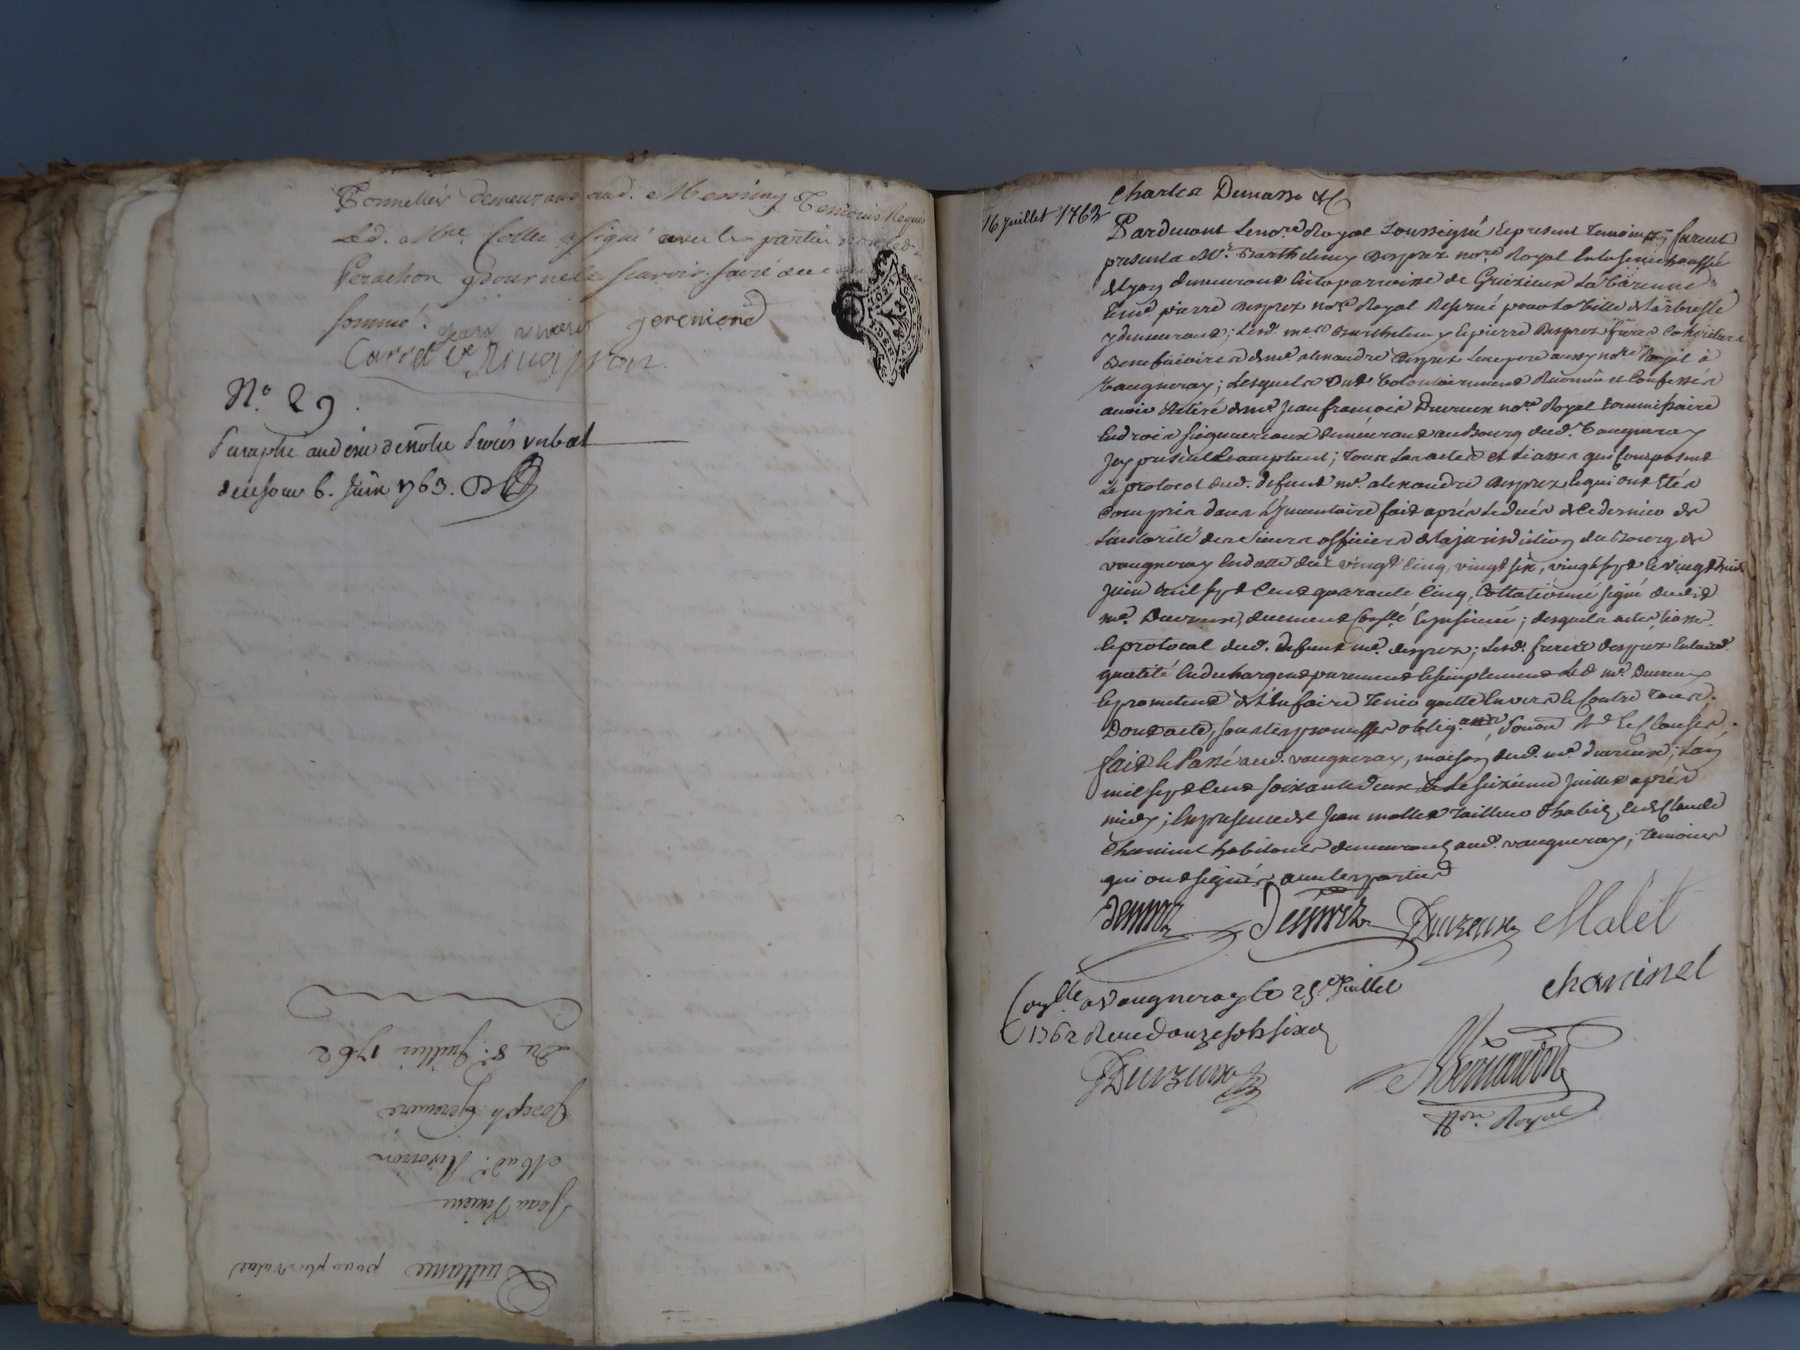 Tonnellier demeurans aud. Messimy Temoins Requis
Led. Mre. Collu a signé avec les parties non led.
Perachon pour ne le scavoir faire de ce
sommé.
jean viviere jeremiere
Carret Ve Rivoiron
No. 29.
Paraphé au désir de notre Procès verbal
de ce jour 6. Juin 1763.
Du 8e. Juillier 1762
Joseph Geremiere
Mad. Rivoiron
Jean Viviere
Quittance pour plus value
Charles Demasso &c
16 juillet 1762
Pardevant Le nore. Royal soussigné & present Temoins furent
presents Mr. Barthelemy Desprez nore. Royal en la senechaussée
de Lyon demeurant en la parroisse de Grizieux La Varenne
Et me pierre Desprez nore. Royal Reservé pour la ville de Larbresle
y demeurant; Lesd. mes Barthelemy & pierre Desprez freres Cohéritiers
Beneficiaires de me alexandre Desprez Leur pere aussy nore Royal à
Vaugneray; Lesquels ont volontairement Reconnu et Confessés
avoir Retiré de me Jean françois Duvreux nore Royal Commissaire
En droits seigneuriaux demeurant au Bourg dud. Vaugneray
Icy présent & acceptant; Tous Les actes et Liasses qui Composent
Le protocol dud. defunt me. alexandre Desprez & qui ont Etés
Compris dans L'Inventaire fait après Le décès de Ce dernier de
L'autorité des sieurs officiers de la jurisdiction du Bourg de
vaugneray En datte des vingt Cinq, vingt six, vingt sept & vingt huit
juin mil sept Cent quarante Cinq, Collationné signé dudit
me. Duvreux, duement Coyllé & insinué; desquels actes, Liasses
& protocol dud. defunt me. desprez; Lesd. freres desprez En lad.
qualité En dechargent purement & simplement Led. me. Duvreux
& promettent de L'En faire Tenir quitte Envers & Contre Tous.
Dont acte, sous les promesses oblig.
fait & Passé aud. vaugneray, maison dud. me. duvreux, L'an
mil sept Cent soixante deux & Le seizieme Juillet après
midy; En presence de Jean mallet Tailleur d'habits, et de Claude
Chaninel habitants demeurants aud. vaugneray, Temoins
qui ont signés avec les parties
Desprez Desprez Duvreux Malet
Chaninel
Coyllé a Vaugneray le 25e Juillet
1762 Recu douze sols six d
Duvreux
Bernardon
Nore. Royal